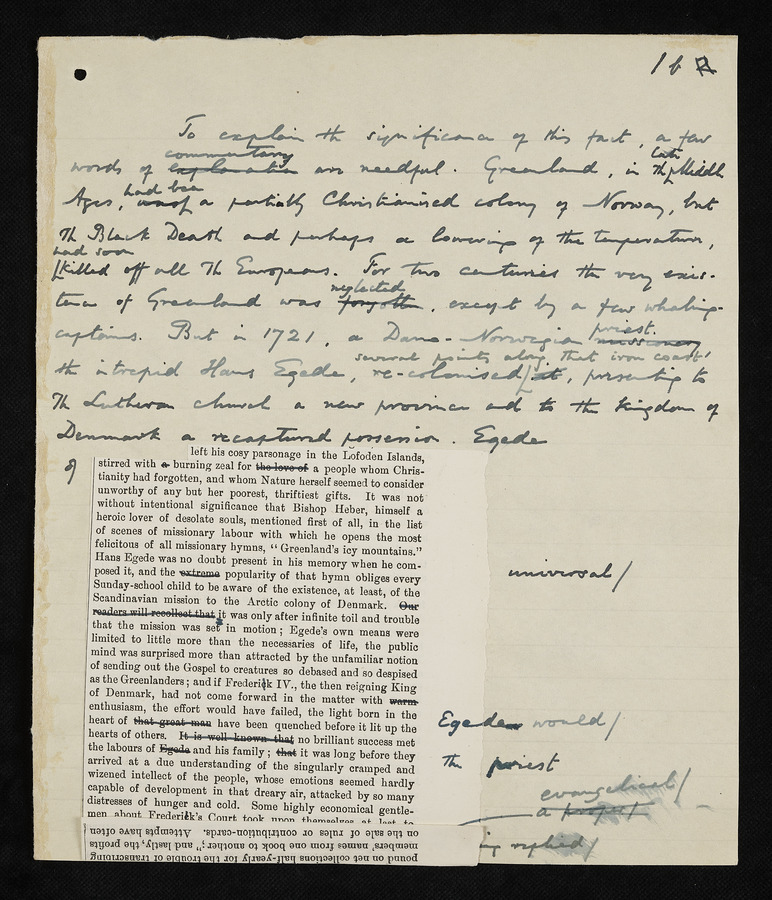 16
To explain the significance of this fact, a few
commentary
words of explanation are needful. Greenland, in the Middle
late
had been
Ages, was a partially Christianised colony of Norway, but
the Black Death and perhaps a lowering of the temperature,
had soon
killed off all the Europeans. For two centuries the very exis-
neglected
tence of Greenland was forgotten, except by a few whaling-
captains. But in 1721, a Dano-Norwegian missionary
priest,
several points along that iron coast
the intrepid Hans Egede, re-colonised it, presenting to
the Lutheran church a new province and to the kingdom of
Denmark a recaptured possession. Egede
left his cosy parsonage in the Lofoden Islands,
of
stirred with a burning zeal for the love of a people whom Chris-
tianity had forgotten, and whom Nature herself seemed to consider
unworthy of any but her poorest, thriftiest gifts. It was not
without intentional significance that Bishop Heber, himself a
heroic lover of desolate souls, mentioned first of all, in the list
of scenes of missionary labour with which he opens the most
felicitous of all missionary hymns, "Greenland's icy mountains."
Hans Egede was no doubt present in his memory when he com-
posed it, and the extreme popularity of that hymn obliges every
universal/
Sunday-school child to be aware of the existence, at least, of the
Scandinavian mission to the Arctic colony of Denmark. Our
readers will recollect that it was only after infinite toil and trouble
that the mission was set in motion; Egede's own means were
limited to little more than the necessaries of life, the public
mind was surprised more than attracted by the unfamiliar notion
of sending out the Gospel to creatures so debased and so despised
as the Greenlanders; and if Frederick IV., the then reigning King
of Denmark, had not come forward in the matter with warm
enthusiasm, the effort would have failed, the light born in the
heart of that great man have been quenched before it lit up the
Egede would/
hearts of others. It is well known that no brilliant success met
the labours of Egede and his family; that it was long before they
the priest
arrived at a due understanding of the singularly cramped and
wizened intellect of the people, whose emotions seemed hardly
capable of development in that dreary air, attacked by so many
evangelical/
distresses of hunger and cold. Some highly economical gentle-
men about Frederick's Court took upon themselves at last to
replied/
on the sale of rules or contribution-cards. Attempts have often
members, names from one book to another;" and lastly, the profits
pound on net collections half-yearly for the trouble of transcribing